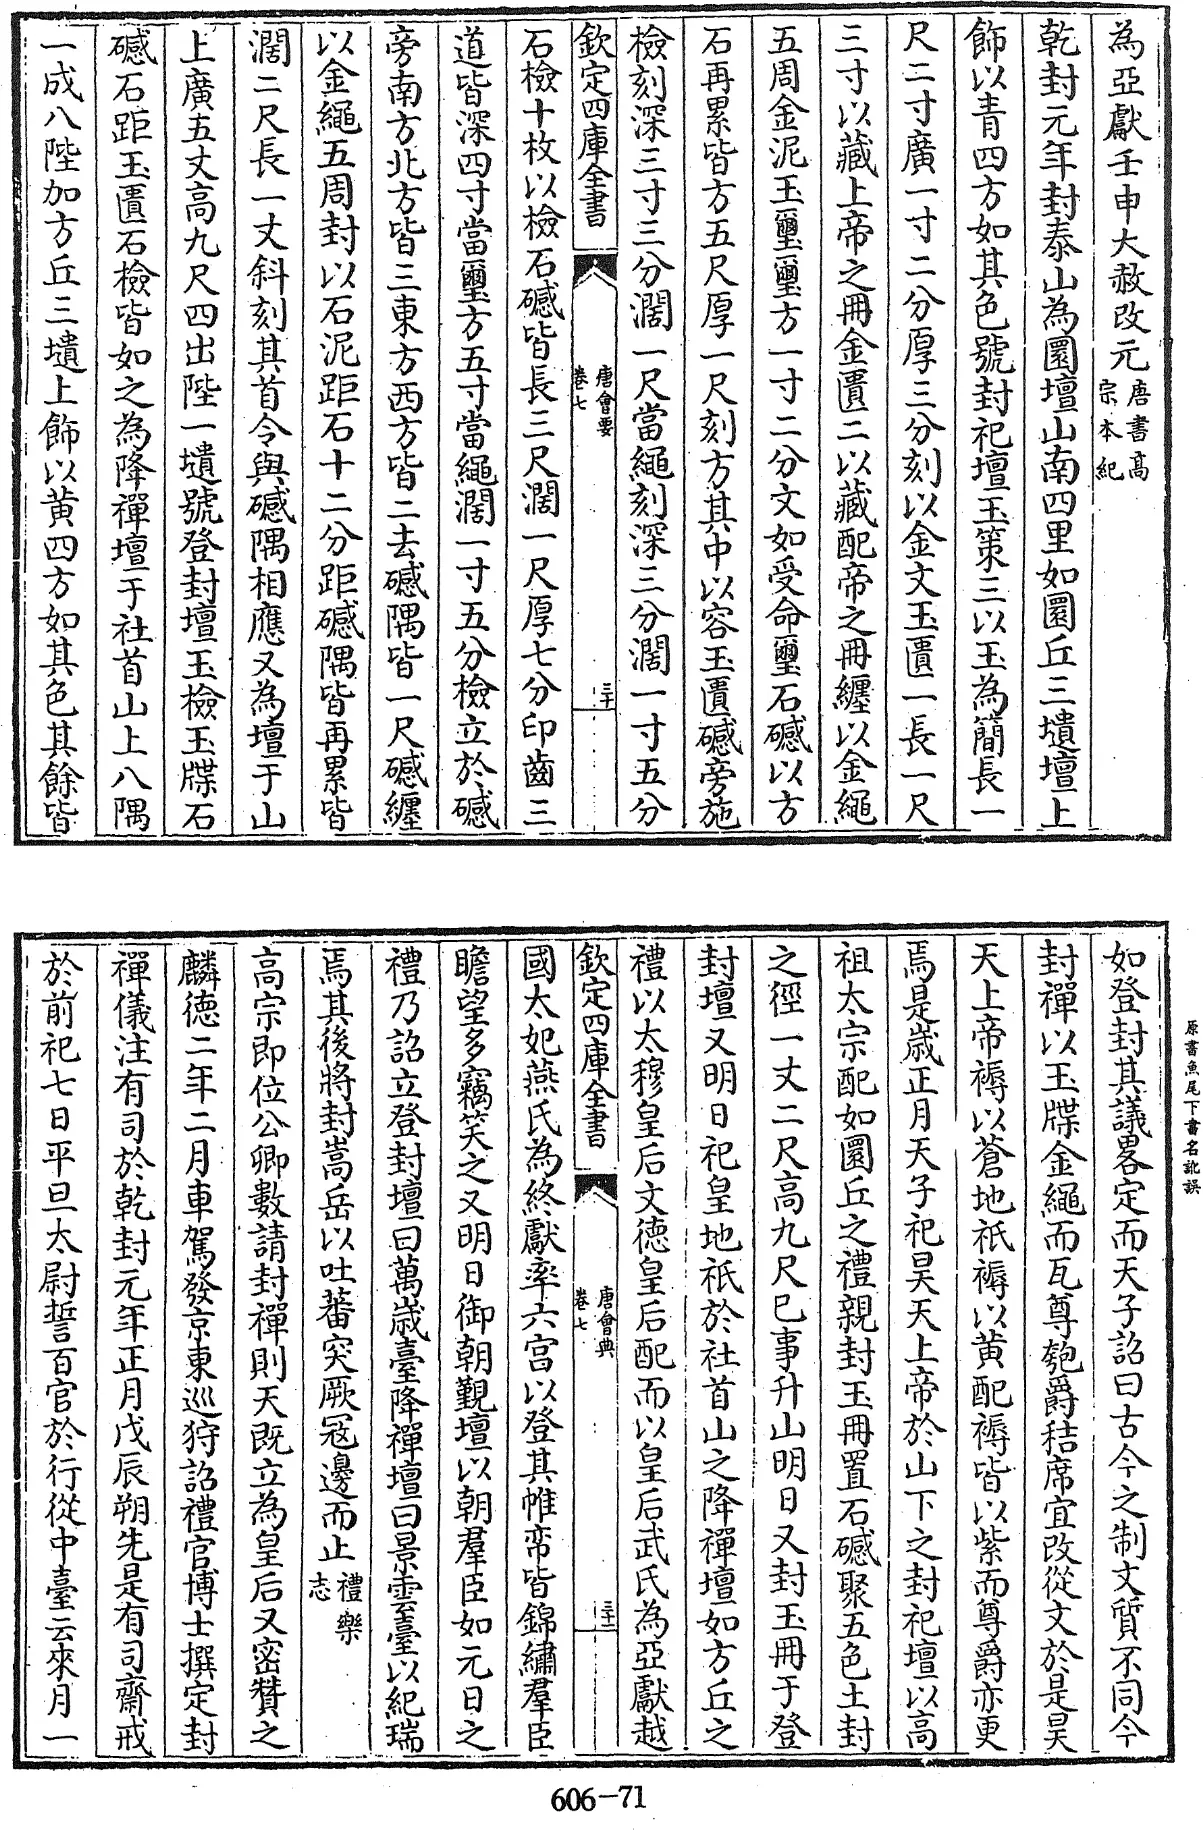 為亞獻壬申大赦改元唐書髙宗本紀
乾封元年封泰山為圜壇山南四里如圜丘三壝壇上
飾以青四方如其色號封祀壇玉策三以玉為簡長一
尺二寸廣一寸二分厚三分刻以金文玉匱一長一尺
三寸以藏上帝之冊金匱二以藏配帝之冊纒以金繩
五周金泥玉璽璽方一寸二分文如受命璽石䃭以方
石再累皆方五尺厚一尺刻方其中以容玉匱䃭旁施
檢刻深三寸三分濶一尺當繩刻深三分濶一寸五分
欽定四庫全書
唐會要
卷七
三十
石檢十枚以檢石䃭皆長三尺濶一尺厚七分印齒三
道皆深四寸當璽方五寸當繩濶一寸五分檢立於䃭
旁南方北方皆三東方西方皆二去䃭隅皆一尺䃭纒
以金繩五周封以石泥距石十二分距䃭隅皆再累皆
濶二尺長一丈斜刻其首令與䃭隅相應又為壇于山
上廣五丈高九尺四出陛一壝號登封壇玉檢玉牒石
䃭石距玉匱石檢皆如之為降禪壇于社首山上八隅
一成八陛加方丘三壝上飾以黄四方如其色其餘皆
如登封其議畧定而天子詔曰古今之制文質不同今
封禪以玉牒金繩而瓦尊匏爵秸席宜改從文於是昊
天上帝褥以蒼地祇褥以黄配褥皆以紫而尊爵亦更
焉是歳正月天子祀昊天上帝於山下之封祀壇以高
祖太宗配如圜丘之禮親封玉冊置石䃭聚五色土封
之徑一丈二尺高九尺已事升山明日又封玉冊于登
封壇又明日祀皇地祇於社首山之降禪壇如方丘之
禮以太穆皇后文德皇后配而以皇后武氏為亞獻越
欽定四庫全書
唐會典
卷七
三十一
國太妃燕氏為終獻率六宫以登其帷帟皆錦繡羣臣
瞻望多竊笑之又明日御朝覲壇以朝羣臣如元日之
禮乃詔立登封壇曰萬歳臺降禪壇曰景雲臺以紀瑞
焉其後將封嵩岳以吐蕃突厥冦邊而止禮樂志
高宗即位公卿數請封禪則天既立為皇后又密贊之
麟徳二年二月車駕發京東巡狩詔禮官博士撰定封
禪儀注有司於乾封元年正月戊辰朔先是有司齋戒
於前祀七日平旦太尉誓百官於行從中臺云來月一
原書魚尾下書名訛誤
606-71